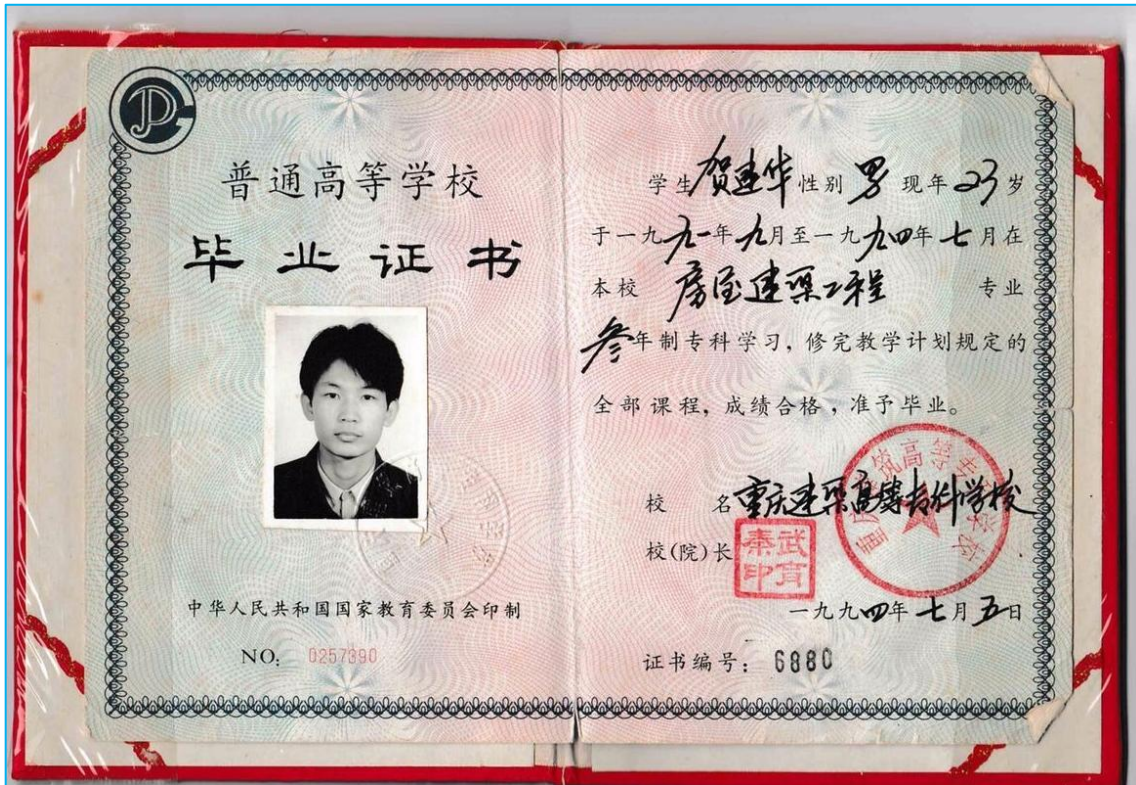 普通高等学校
毕业证书
中华人民共和国国家教育委员会印制
NO: 0257390
学生贺建华性别男现年23岁
于一九九一年九月至一九九四年七月在
本校 房屋建筑工程 专业
叁年制专科学习，修完教学计划规定的
全部课程，成绩合格，准予毕业。
校 名 重庆建筑高等专科学校
重庆建筑高等专科学校
校(院)长
武育
秦印
一九九四年七月五日
证书编号：6880